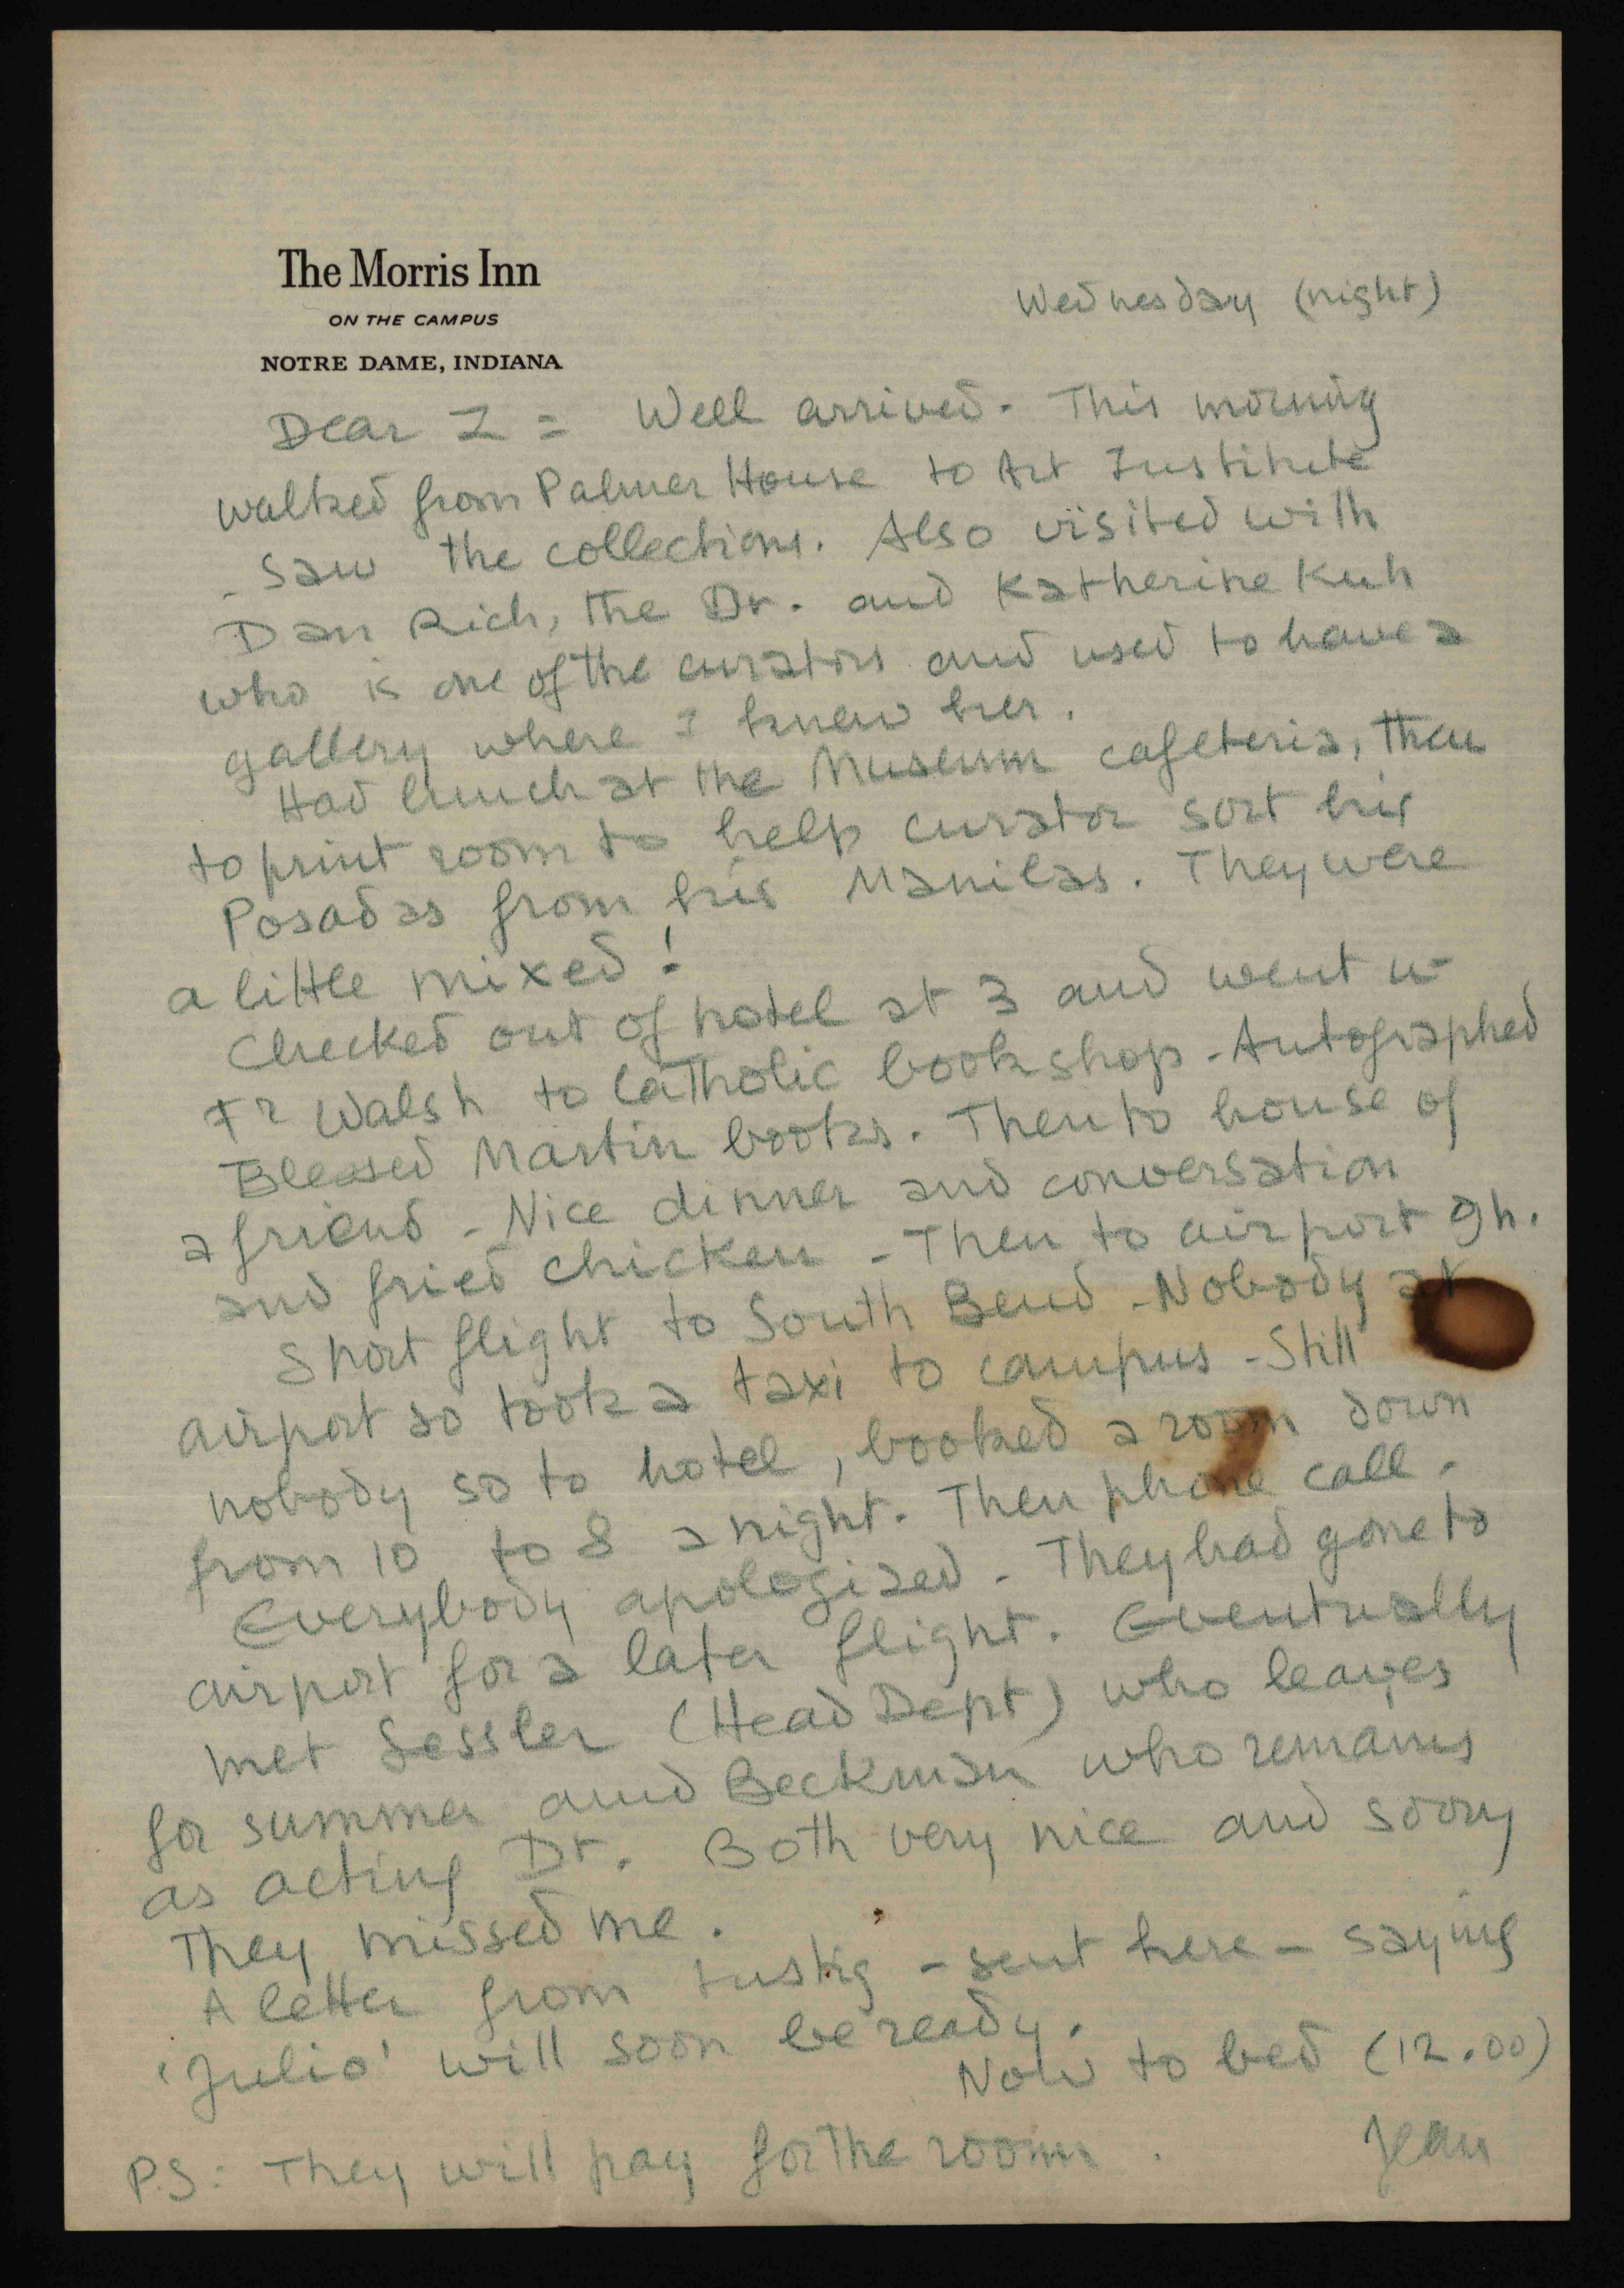 The Morris Inn
ON THE CAMPUS
NOTRE DAME, INDIANA
Wednesday (night)
Dear Z = Well arrived. This morning
walked from Palmer House to Art Institute
- saw the collections. Also visited with
Dan Rich, the Dr. and Katherine Kuh
who is one of the curators and used to have a
gallery where I knew her.
Had lunch at the Museum cafeteria, then
to print room to help curator sort his
Posadas from his Manilas. They were
a little mixed!
Checked out of hotel at 3 and went w-
Fr Walsh to Catholic bookshop - Autographed
Blessed Martin books. Then to house of
a friend - Nice dinner and conversation
and fried chicken - Then to airport 9h.
Short flight to South Bend - Nobody at
airport so took a taxi to campus - Still
nobody so to hotel, booked a room down
from 10 to 8 a night. Then phone call.
Everybody apologized. They had gone to
airport for a later flight. Eventually
met Sessler (Head Dept) who leaves
for summer and Beckman who remains
as acting Dr. Both very nice and soory
They missed me.
A letter from Lustig - sent here - saying
'Julio' will soon be ready.
Now to bed (12.00)
Jean
P.S: They will pay for the room.